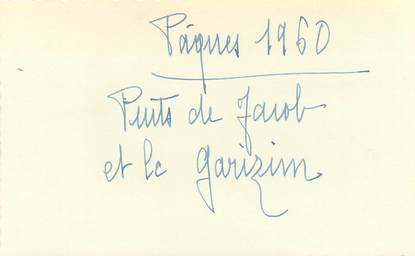 Pâques 1960
Puits de Jacob
et le Garizim